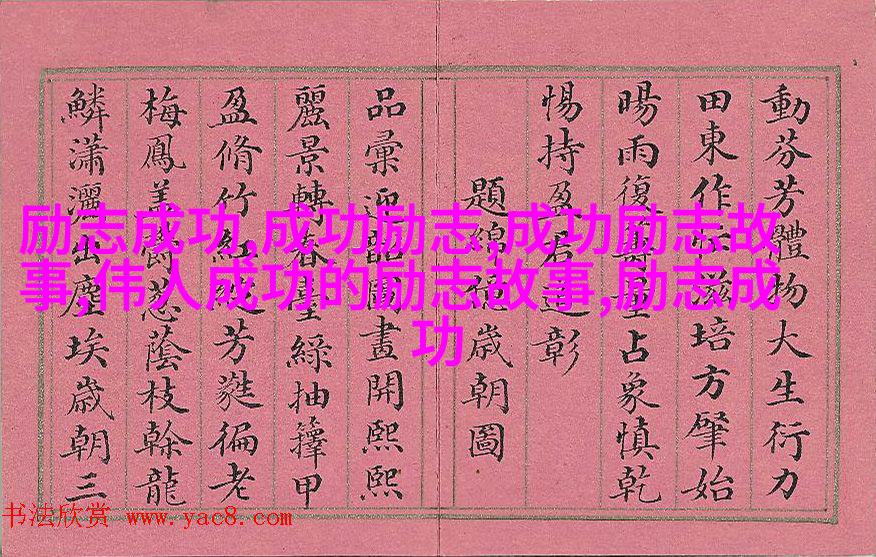 動芬芳體物大生衍力
田東作滋培方肇始
暘雨復占象慎乾
惕持盈彰
題綿億歲朝圖
品彙迎韶圖畫開熙熙
麗景轉春臺綠抽籜甲
盈脩竹紅芳蕤徧老
梅鳳蔭枝榦龍
鱗瀟灑出塵埃歲朝三
励志成功,成功励志,成功励志故
事,伟人成功的励志故事,励志成
功
书法欣赏 www.yac8.com